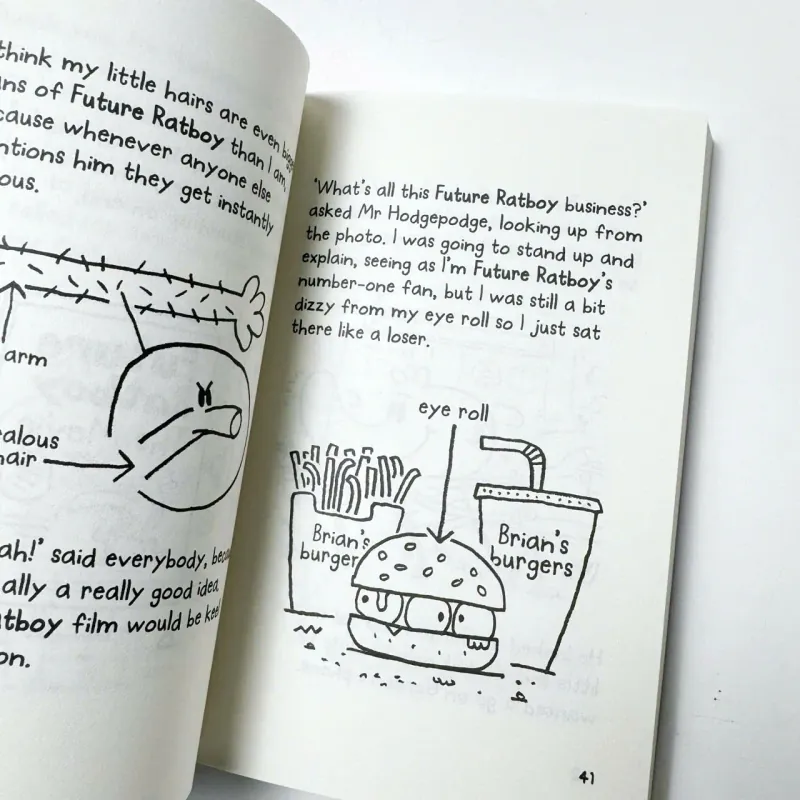 think my little hairs are even
of Future Ratboy than I am,
whenever anyone else
him they get instantly
arm
hair
said everybody,
ally a really good idea.
film would be
on.
'What's all this Future Ratboy business?'
asked Mr Hodgepodge, looking up from
the photo. I was going to stand up and
explain, seeing as I'm Future Ratboy's
number-one fan, but I was still a bit
dizzy from my eye roll so I just sat
there like a loser.
eye roll
Brian's
burgers
Brian's
burgers
41